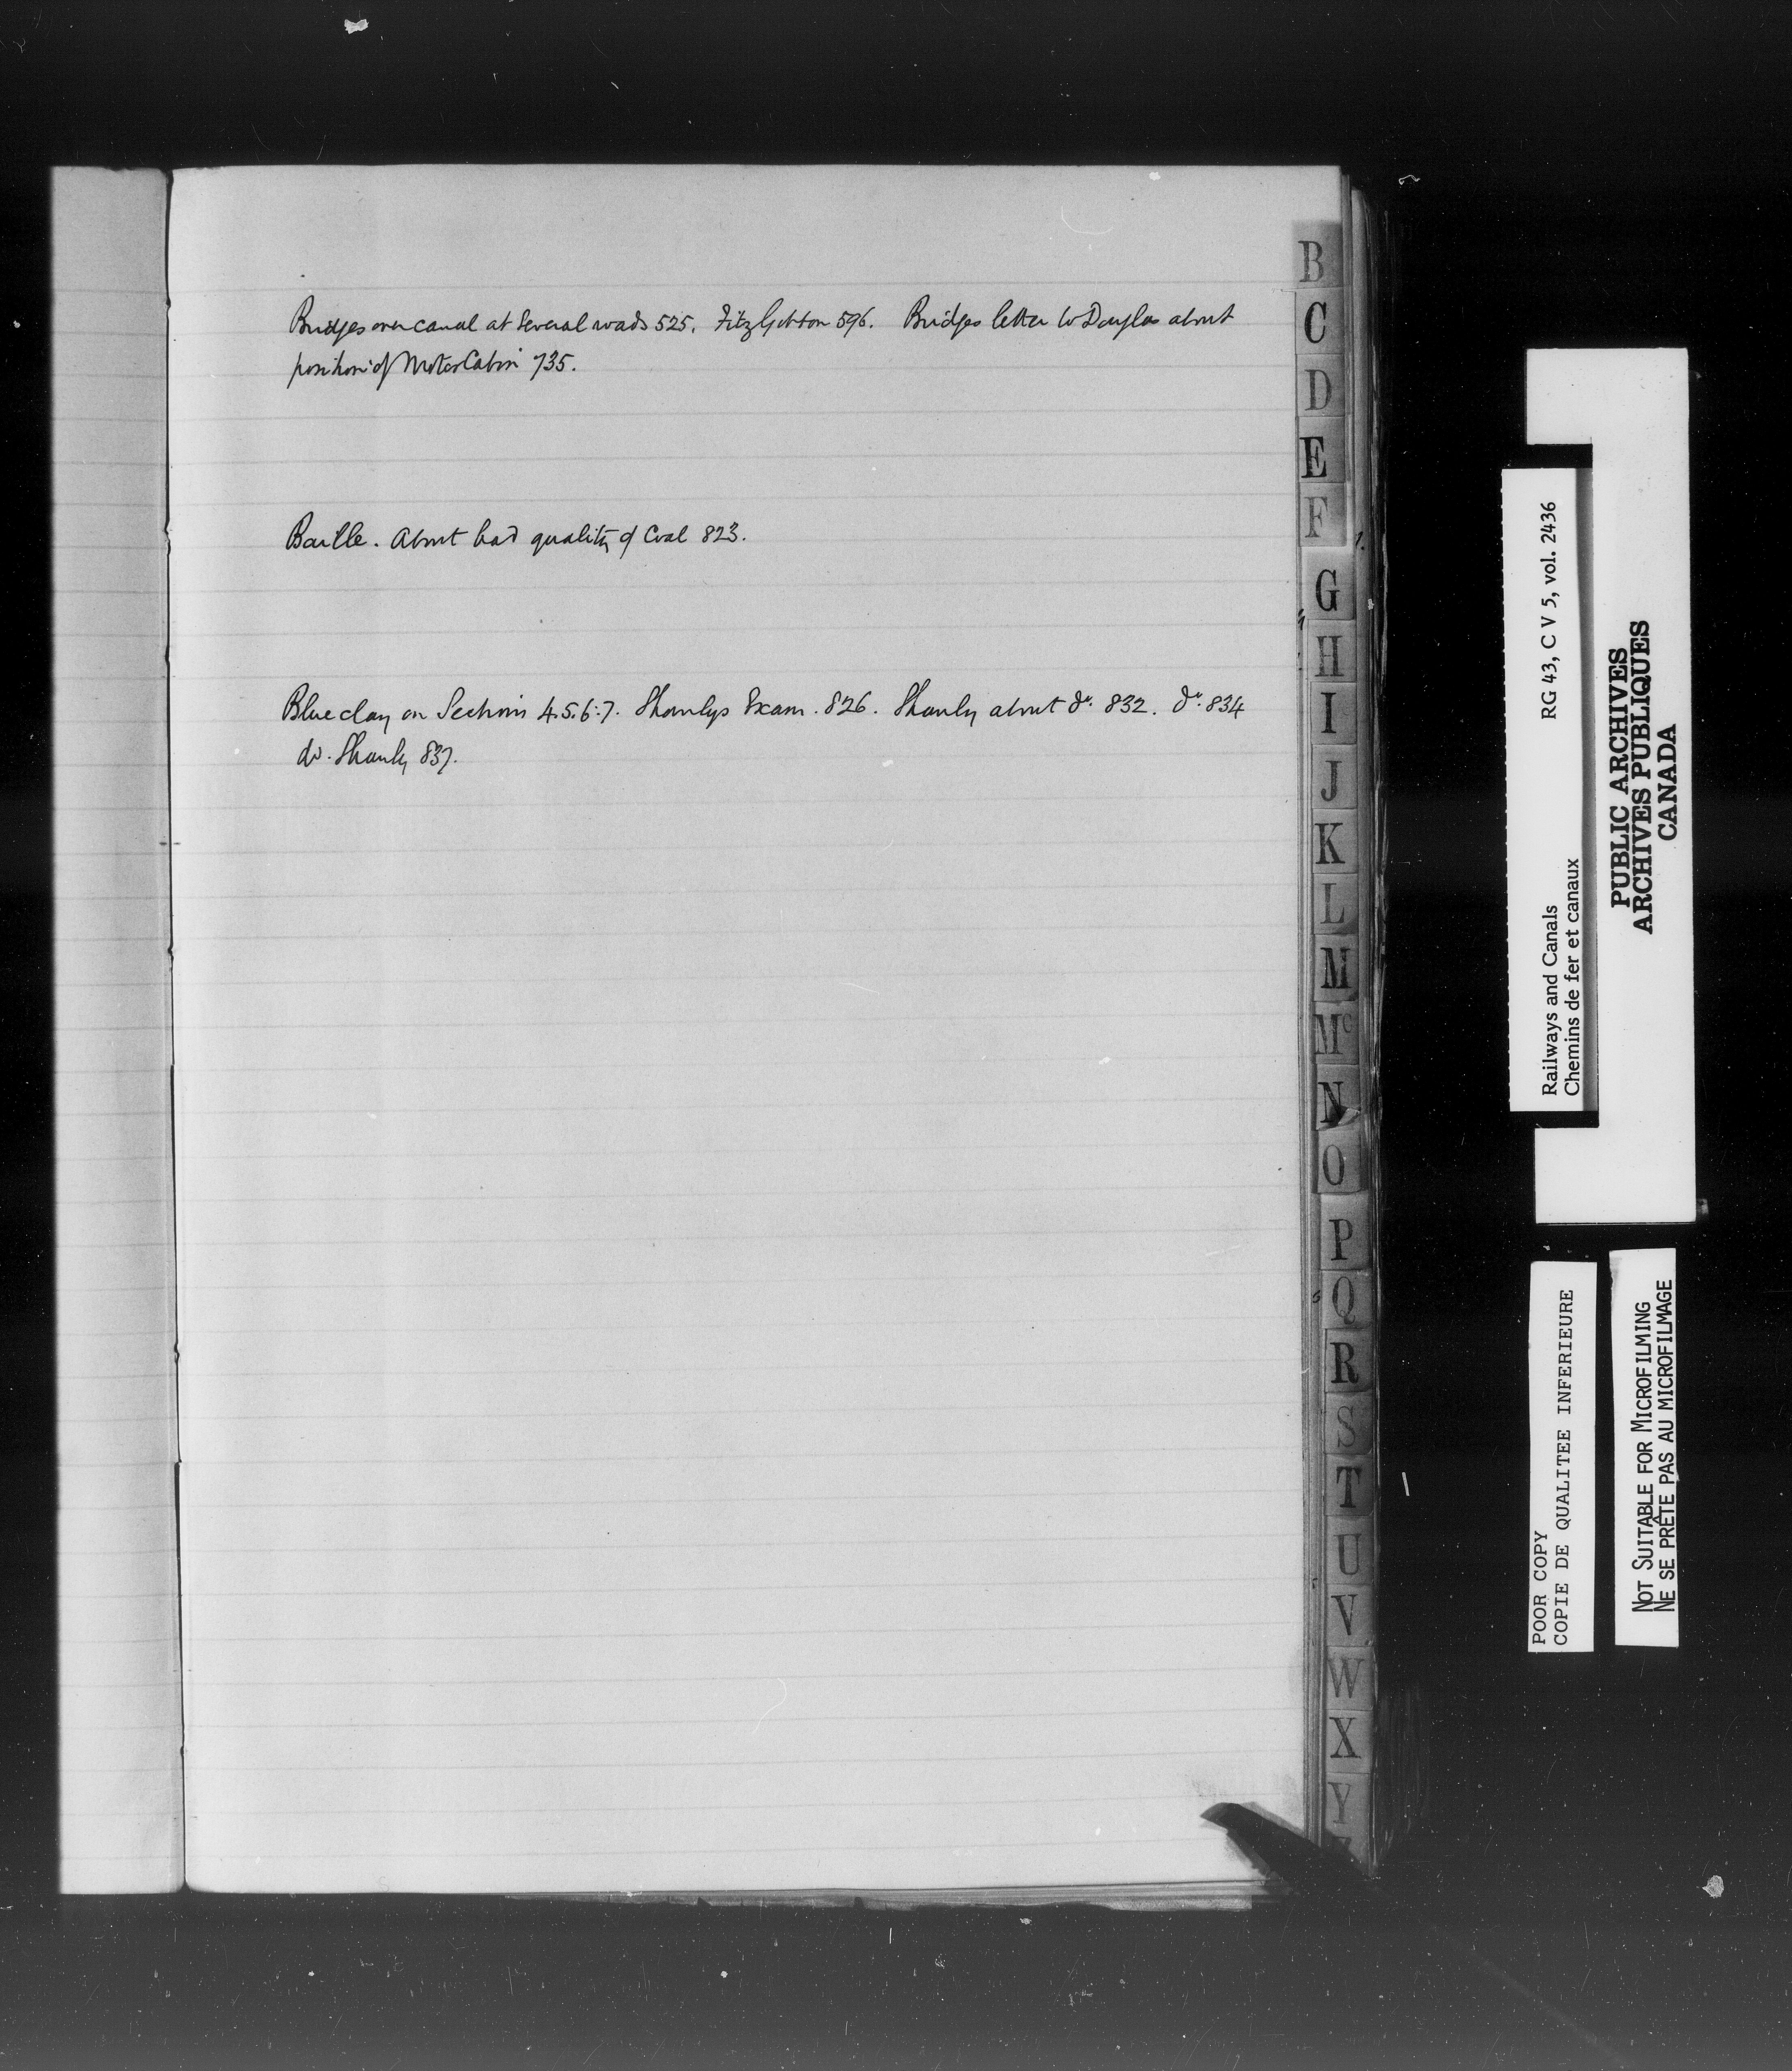 Bridges over canal at Several roads 525. FitzGibbon 596. Bridges letter to Douglas about
position of Motor Cabin 735.
Baille. About bad quality of Coal 823.
Blue clay on Sections 4.5.6:7. Shanlys Exam. 826. Shanly about do. 832. do. 834
do. Shanly 837.
B
C
D
E
F
G
H
I
J
K
L
M
Mc
N
O
P
Q
R
S
T
U
V
W
X
Y
Railways and Canals RG 43, C V 5, vol. 2436
Chemins de fer et canaux
PUBLIC ARCHIVES
ARCHIVES PUBLIQUES
CANADA
POOR COPY
COPIE DE QUALITEE INFERIEURE
NOT SUITABLE FOR MICROFILMING
NE SE PRÊTE PAS AU MICROFILMAGE